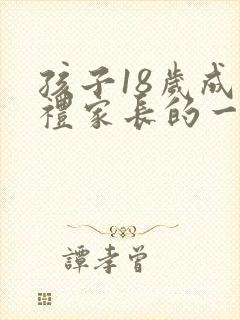 孩子18歲成
禮家長的一
譚孝曾